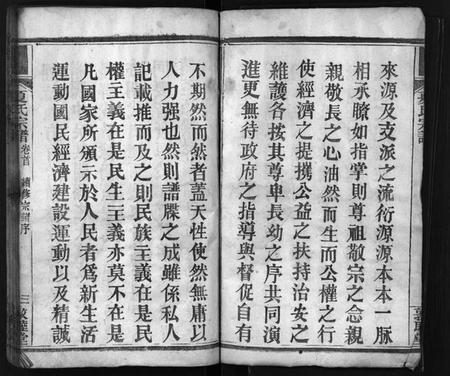 來源及支派之流衍源源本本一脈
相承瞭如指掌則尊祖敬宗之念親
親敬長之心油然而生而公權之行
使經濟之提攜公益之扶持治安之
維護各按其尊卑長幼之序共同演
進更無待政府之指導與督促自有
不期然而然者蓋天性使然無庸以
人力強也然則譜牒之成雖係私人
記載推而及之則民族主義在是民
權主義在是民生主義亦莫不在是
凡國家所頒示於人民者為新生活
運動國民經濟建設運動以及精誠
氏宗譜 卷首 續修宗譜序
三